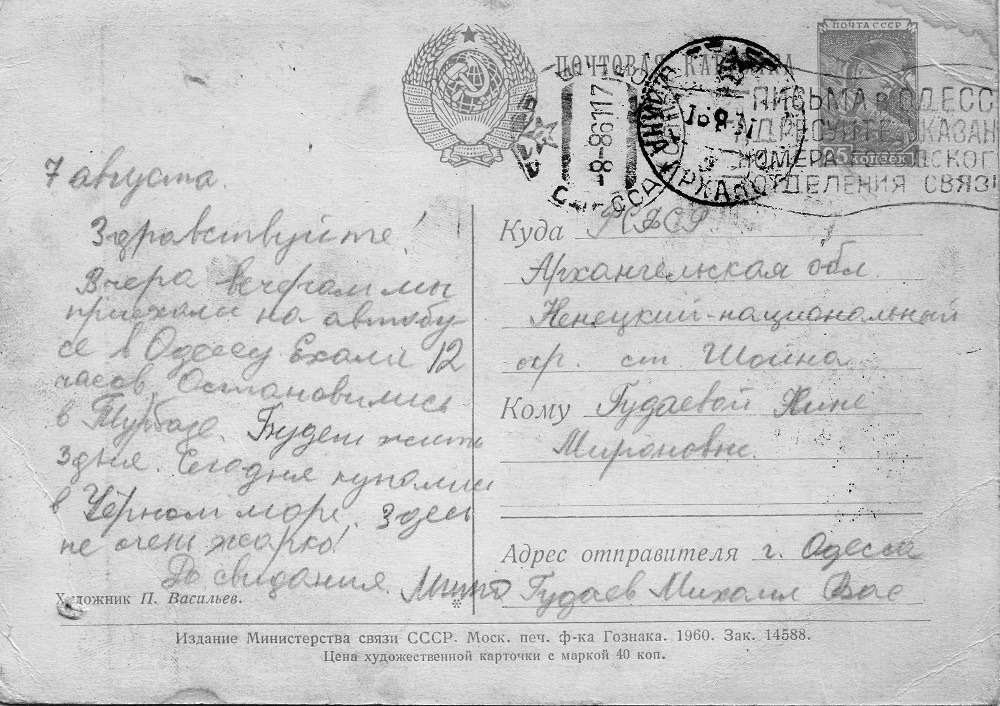 ПОЧТА СССР
ПОЧТОВАЯ КАРТОЧКА
25 КОПЕЕК
ПИСЬМА в ОДЕСС
АДРЕСУЙТЕ УКАЗАН
НОМЕРА ГОРОДСКОГО
ОТДЕЛЕНИЯ СВЯЗИ
7 августа.
Здравствуйте!
Вчера вечером мы
приехали на автобу-
се в Одессу Ехали 12
часов. Остановились
в Турбазе. Будем жить
3 дня. Сегодня купались
в Чёрном море. Здесь
не очень жарко!
До свидания. Миша
Художник П. Васильев.
Куда РСФСР
Архангельская обл.
Ненецкий-национальный
окр. ст. Шойна
Кому Гудаевой Нине
Мироновне.
Адрес отправителя г. Одесса
Гудаев Михаил Вас
Издание Министерства связи СССР. Моск. печ. ф-ка Гознака. 1960. Зак. 14588.
Цена художественной карточки с маркой 40 коп.